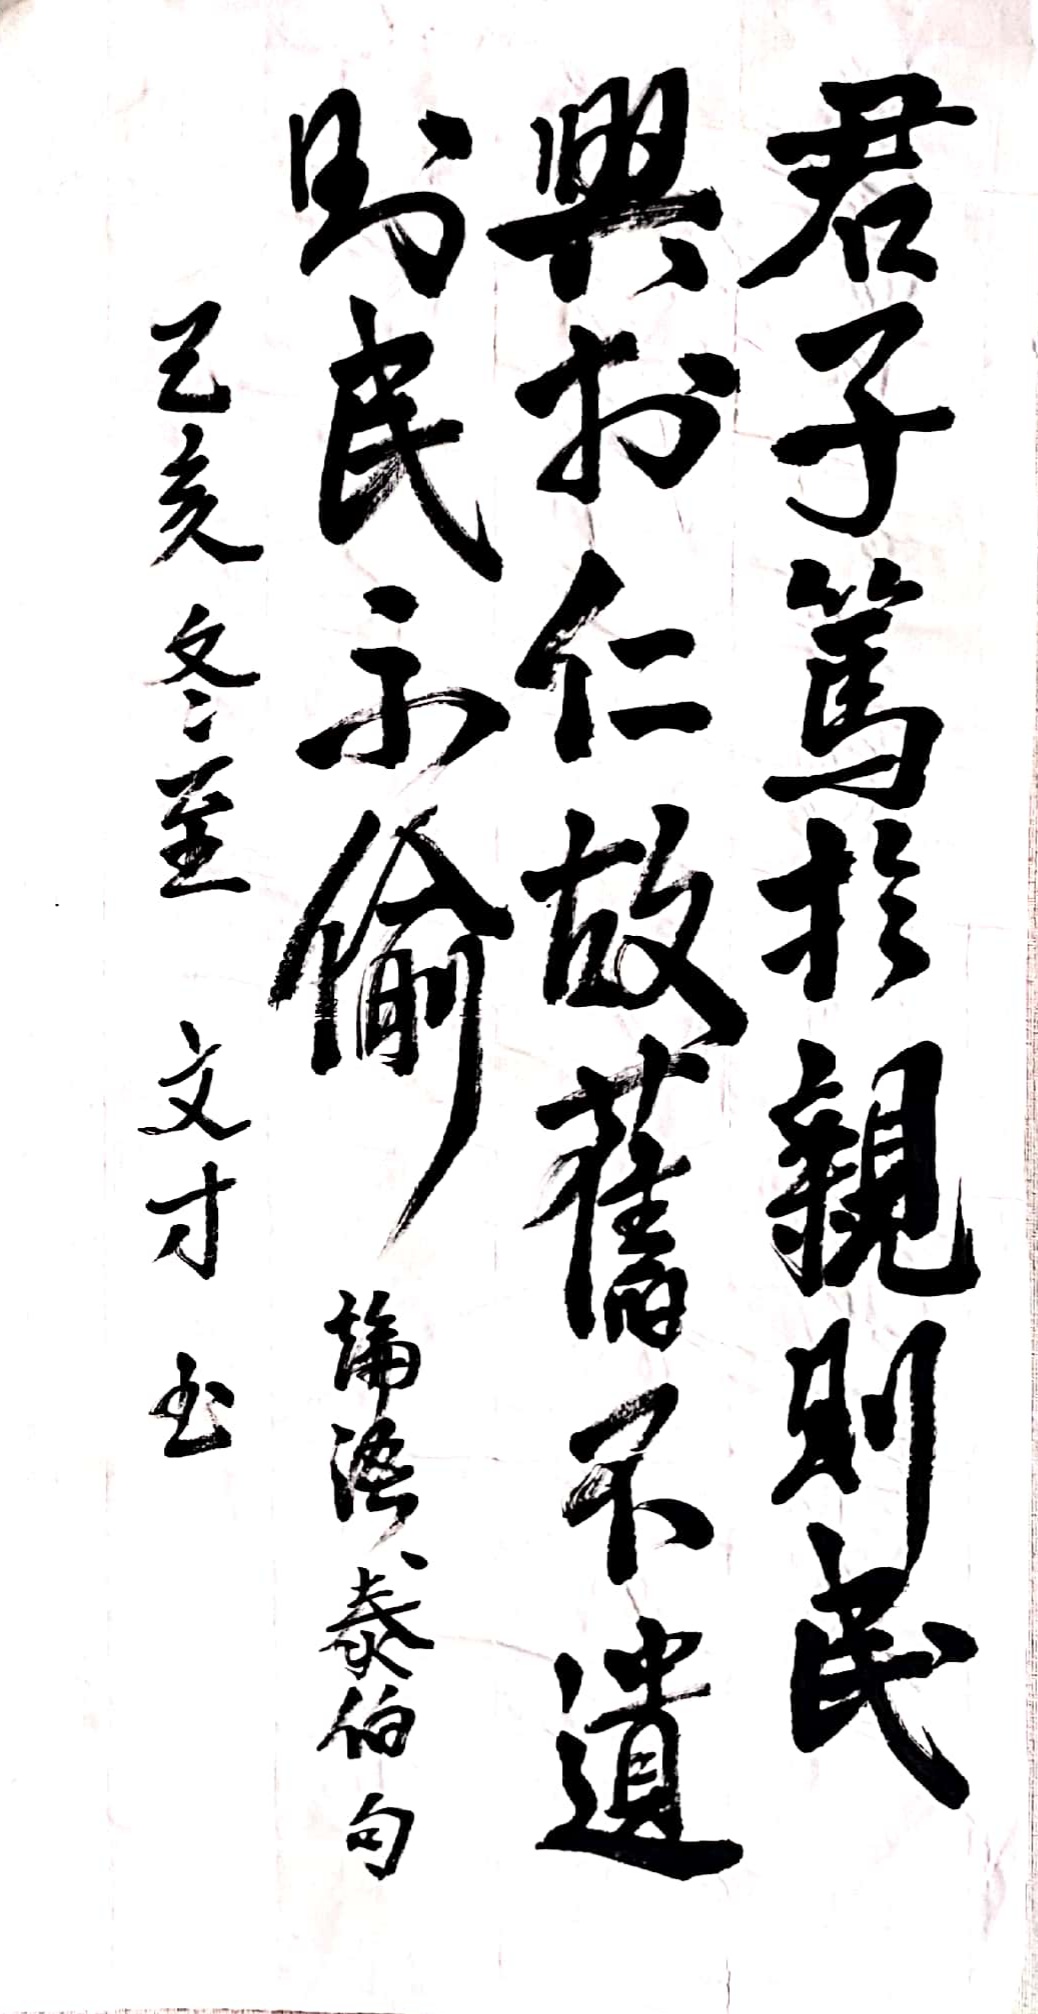 君子篤於親則民
興於仁故舊不遺
則民不偷 論語泰伯句
己亥冬至 文才书